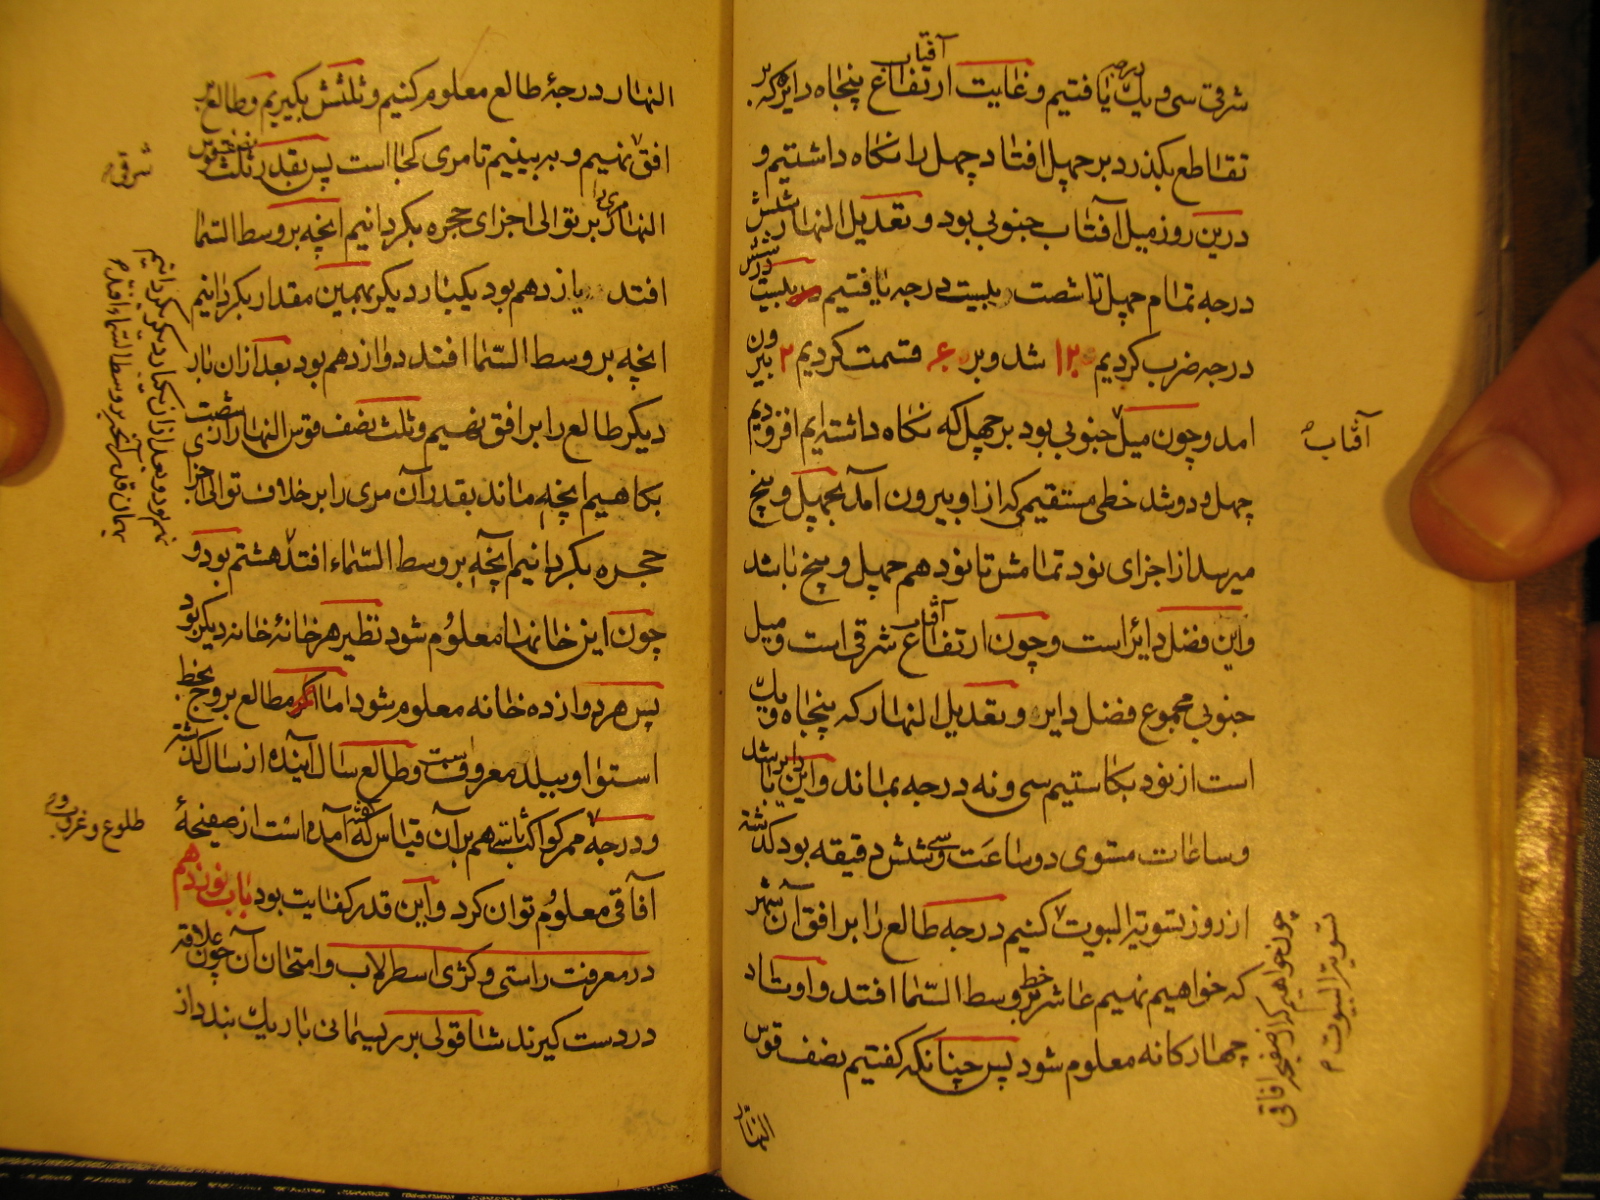 شرقی سی و یک درجه یافتیم و غایت ارتفاع آفتاب پنجاه دایره که بر
تقاطع بگذرد بر چهل افتاد چهل را نگاه داشتیم و
درین روز میل آفتاب جنوبی بود و تعدیل النهار شش
درجه تمام چهل تا شصت بیست درجه یافتیم بیست در شش
درجه ضرب کردیم ۱۲۰ شد و بر ۶۰ قسمت کردیم ۲ بیرون
امد و چون میل جنوبی بود بر چهل که نگاه داشته ایم افزودیم
آفتاب
چهل و دو شد خطی مستقیم که از او بیرون آمد بچهل و پنج
میرسد از اجزای نود تمامش تا نود هم چهل و پنج باشد
و این فضل دایر است و چون ارتفاع آفتاب شرقی است و میل
جنوبی مجموع فضل دایر و تعدیل النهار که پنجاه و یک
است از نود بکاستیم سی و نه درجه بماند و این دایر باشد
و ساعات مستوی دو ساعت و سی و شش دقیقه بود گذشته
از روز تسویة البیوت کنیم درجه طالع را بر افق آن شهر
که خواهیم نهیم عاشر بر خط وسط السما افتد و اوتاد
چهارگانه معلوم شود پس چنانکه گفتیم نصف قوس
تسویة البیوت
چون خواهیم که از صفیحه افاقی
النهار
النهار درجهٔ طالع معلوم کنیم و ثلثش بگیریم و طالع بر
افق نهیم و ببینیم تا مری کجا است پس بقدر ثلث نصف قوس
شرقی
النهار مری را بر توالی اجزای حجره بگردانیم انچه بر وسط السما
افتد یازدهم بود یکبار دیگر بهمین مقدار بگردانیم
انچه بر وسط السما افتد دوازدهم بود بعد از ان بار
نهم بود و بعد از ان یکبار دیگر بگردانیم
بهمان قدر انچه بر وسط السماء افتد
دیگر طالع را بر افق نهیم و ثلث نصف قوس النهار از شصت
بکاهیم انچه ماند بقدر آن مری را بر خلاف توالی اجزای
حجره بگردانیم آنچه بر وسط السماء افتد هشتم بود و
چون این خانها معلوم شود نظیر هر خانهٔ خانه دیگر بود
پس هر دوازده خانه معلوم شود اما اگر مطالع بروج بخط
استوا و ببلد معروف و طالع سال آینده از سال گذشته
و درجه ممر کواکب ثابته هم بر آن قیاس که گفته آمده است از صفیحهٔ
طلوع و غروب
آفاقی معلوم توان کرد و این قدر کفایت بود باب نوزدهم
در معرفت راستی و کژی اسطرلاب و امتحان آن چون علاقه
در دست گیرند شاقولی بر ریسمانی باریک بندد از